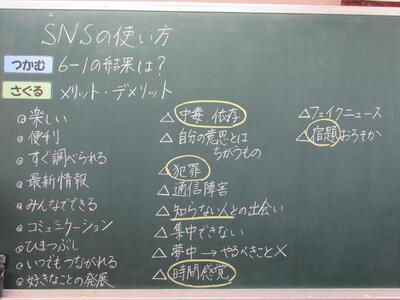 SNSの使い方
つかむ 6-1の結果は?
さぐる メリット・デメリット
◎楽しい
◎便利
◎すぐ調べられる
◎最新情報
◎みんなでできる
◎コミュニケーション
◎ひまつぶし
◎いつでもつながれる
◎好きなことの発展
△中毒・依存
△自分の意思とは
ちがうもの
△犯罪
△通信障害
△知らない人との出会い
△集中できない
△夢中→やるべきこと×
△時間感覚
△フェイクニュース
△宿題おろそか